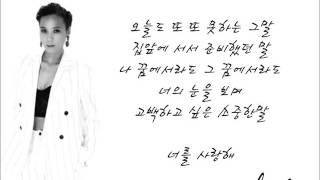 오늘도 또 또 못하는 그말
집앞에 서서 준비했던 말
나 꿈에서라도 그 꿈에서라도
너의 눈을 보며
고백하고 싶은 소중한말
너를 사랑해